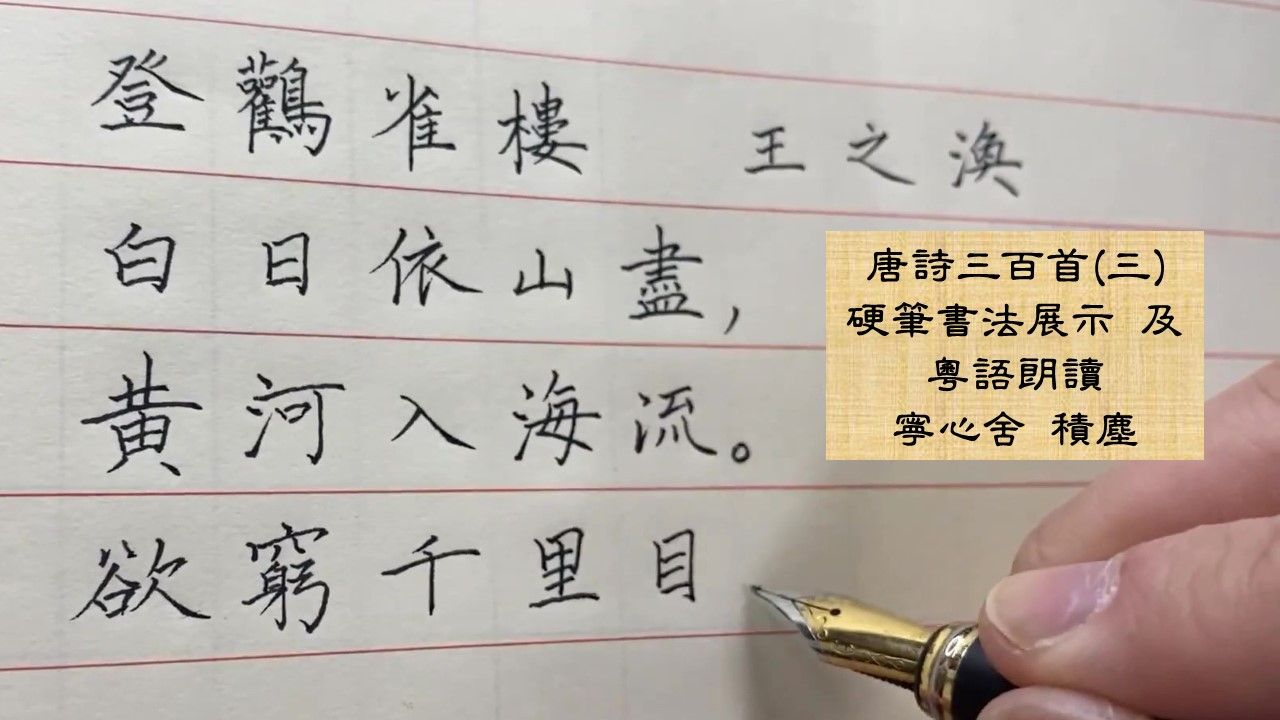 登鸛雀樓 王之渙
白日依山盡,
黃河入海流。
欲窮千里目
唐詩三百首(三)
硬筆書法展示 及
粵語朗讀
寧心舍 積塵